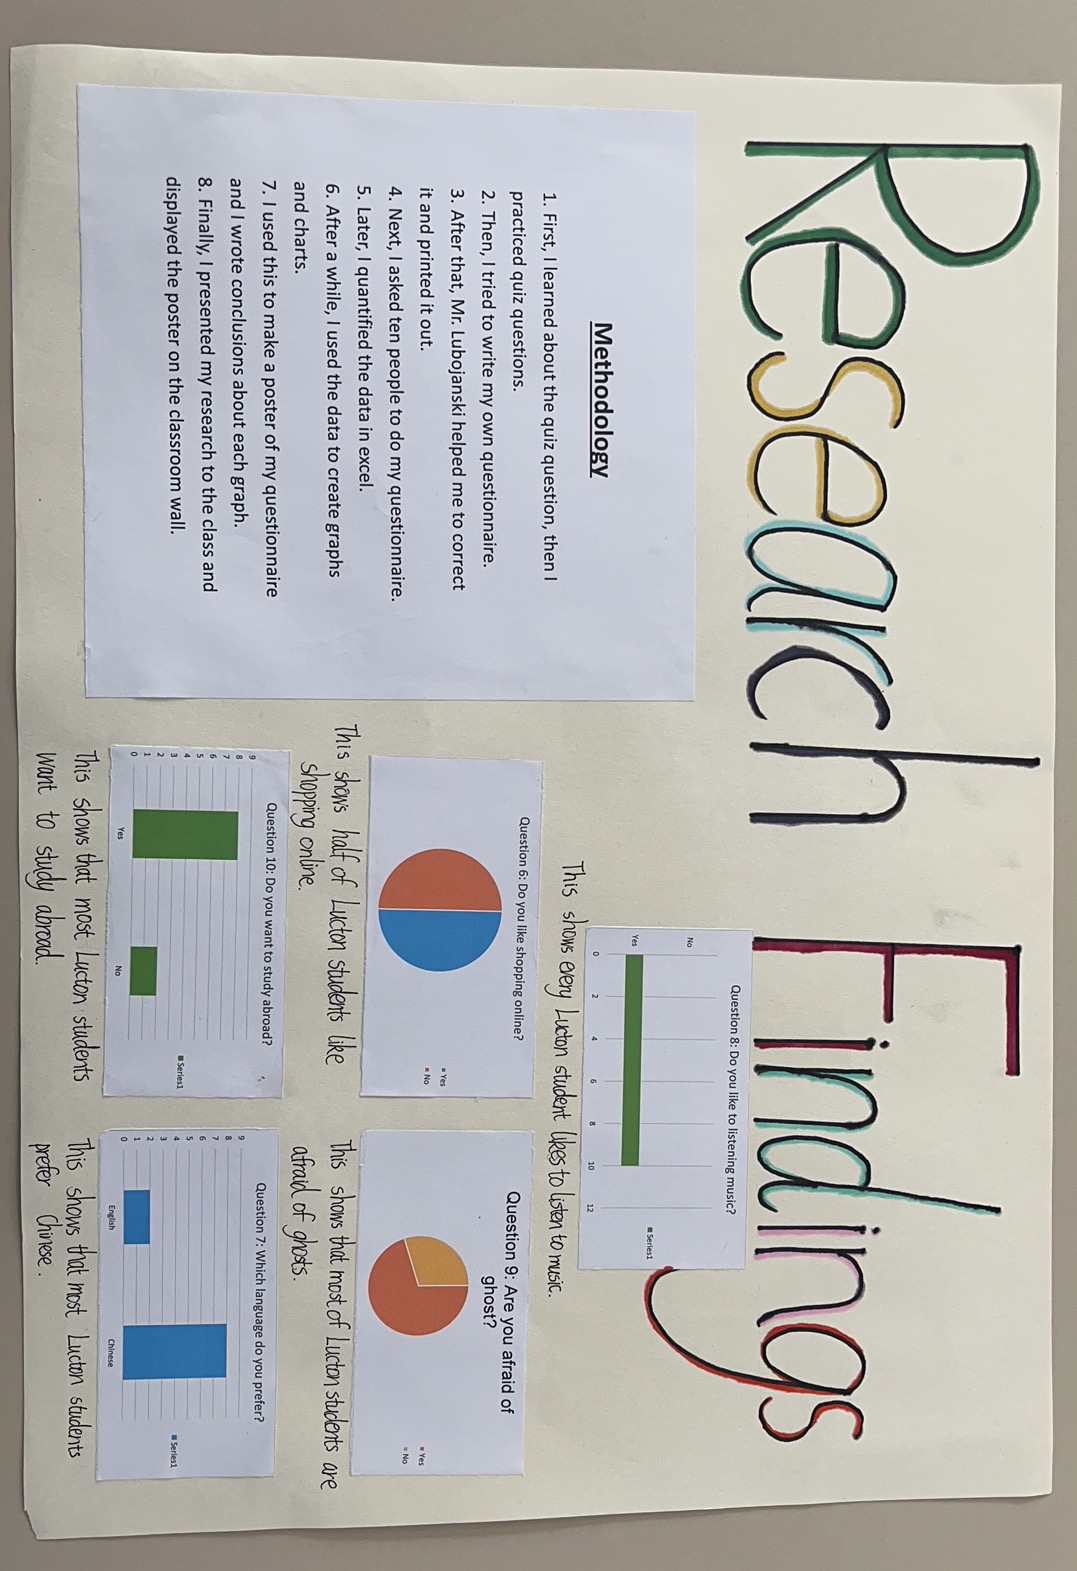 Research Findings
Methodology
1. First, I learned about the quiz question, then I
practiced quiz questions.
2. Then, I tried to write my own questionnaire.
3. After that, Mr. Lubojanski helped me to correct
it and printed it out.
4. Next, I asked ten people to do my questionnaire.
5. Later, I quantified the data in excel.
6. After a while, I used the data to create graphs
and charts.
7. I used this to make a poster of my questionnaire
and I wrote conclusions about each graph.
8. Finally, I presented my research to the class and
displayed the poster on the classroom wall.
Question 8: Do you like to listening music?
No
Yes
0 2 4 6 8 10 12
Series1
This shows every Lucton student likes to listen to music.
Question 6: Do you like shopping online?
Yes
No
This shows half of Lucton students like
shopping online.
Question 9: Are you afraid of
ghost?
Yes
No
This shows that most of Lucton students are
afraid of ghosts.
Question 10: Do you want to study abroad?
9
8
7
6
5
4
3
2
1
0
Yes No
Series1
This shows that most Lucton students
want to study abroad.
Question 7: Which language do you prefer?
9
8
7
6
5
4
3
2
1
0
English Chinese
Series1
This shows that most Lucton students
prefer Chinese.